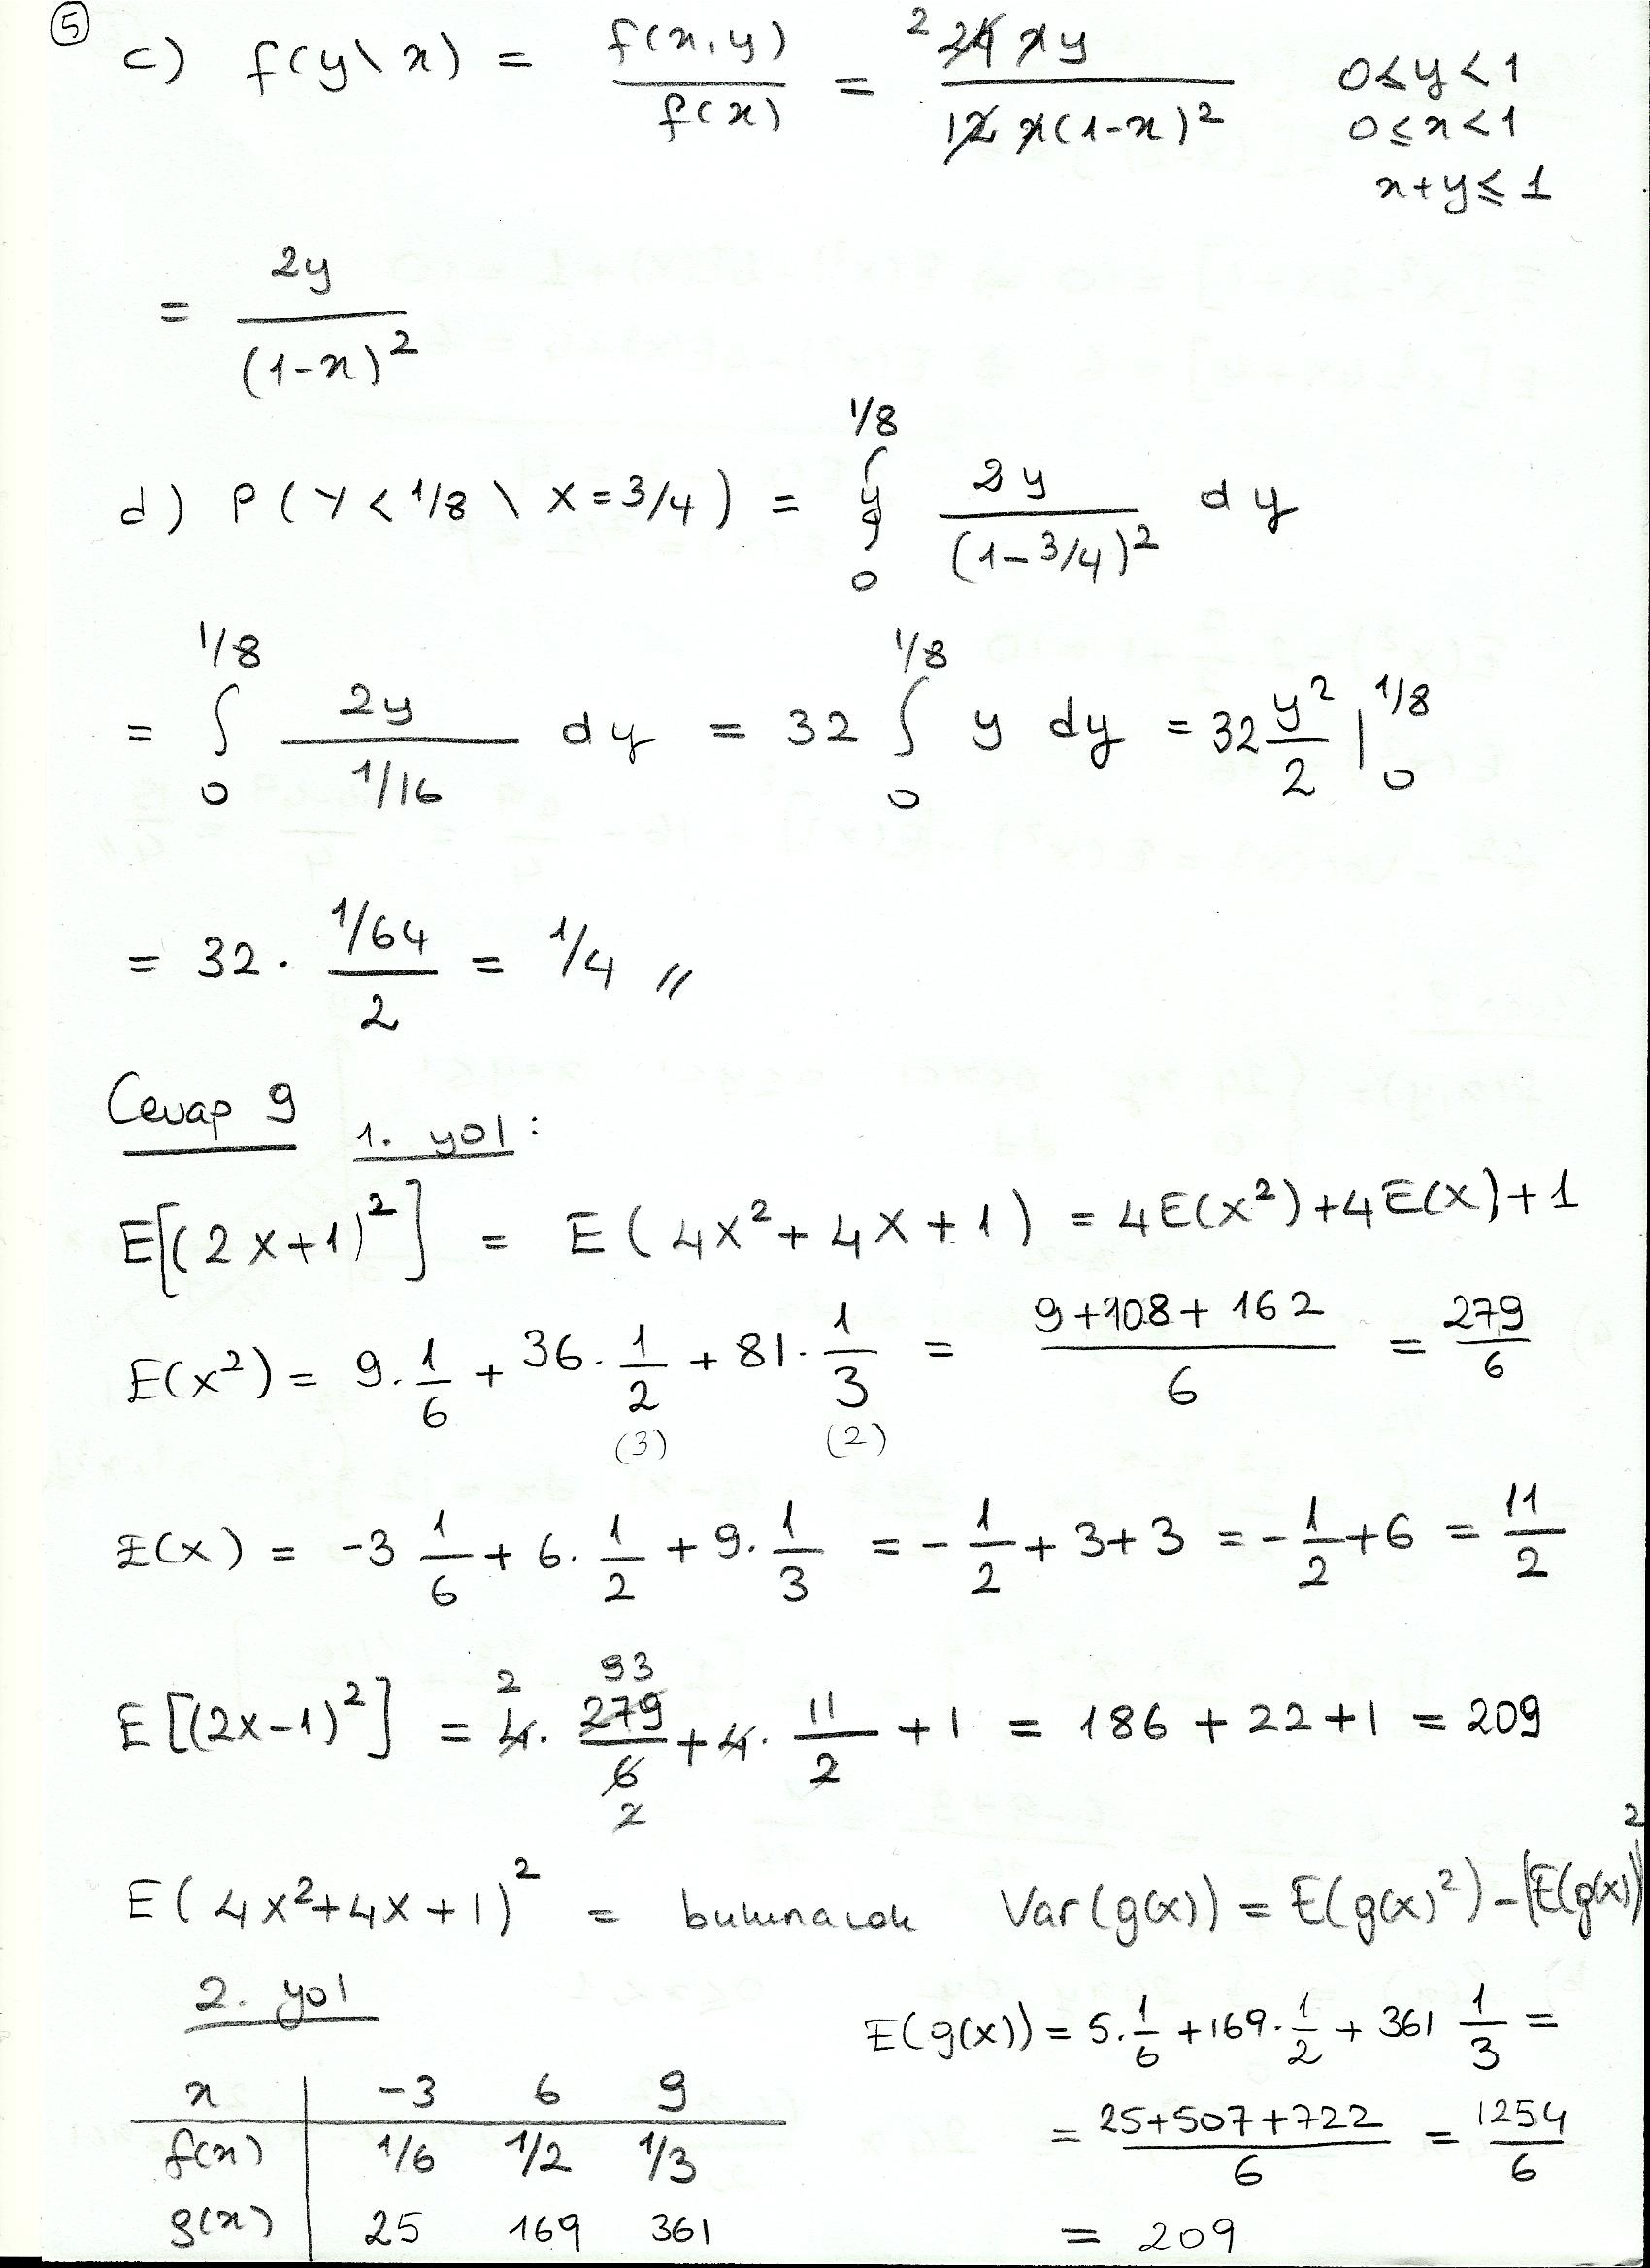 5
c) f(y\x) = f(x,y) / f(x) = ² 24 x y / 12 x(1-x)² 0≤y<1
0≤x<1
x+y≤1
= 2y / (1-x)²
d) P(Y<1/8 \ X=3/4) = ∫₀^1/8 2y / (1-3/4)² dy
= ∫₀^1/8 2y / 1/16 dy = 32 ∫₀^1/8 y dy = 32 y²/2 |₀^1/8
= 32 · 1/64 / 2 = 1/4 //
Cevap 9 1. yol:
E[(2x+1)²] = E(4x²+4x+1) = 4E(x²)+4E(x)+1
E(x²) = 9.1/6 + 36.1/2 + 81.1/3 = 9+108+162 / 6 = 279/6
(3) (2)
E(x) = -3 1/6 + 6.1/2 + 9.1/3 = -1/2 + 3+3 = -1/2+6 = 11/2
E[(2x-1)²] = 2 4. 93 279/6 2 + 4. 11/2 + 1 = 186 + 22 + 1 = 209
E(4x²+4x+1)² = bulunacak Var(g(x)) = E(g(x)²) - (E(g(x))²
2. yol
E(g(x)) = 5.1/6 + 169.1/2 + 361 1/3 =
= 25+507+722 / 6 = 1254/6
= 209
x | -3 6 9
f(x) | 1/6 1/2 1/3
g(x) | 25 169 361